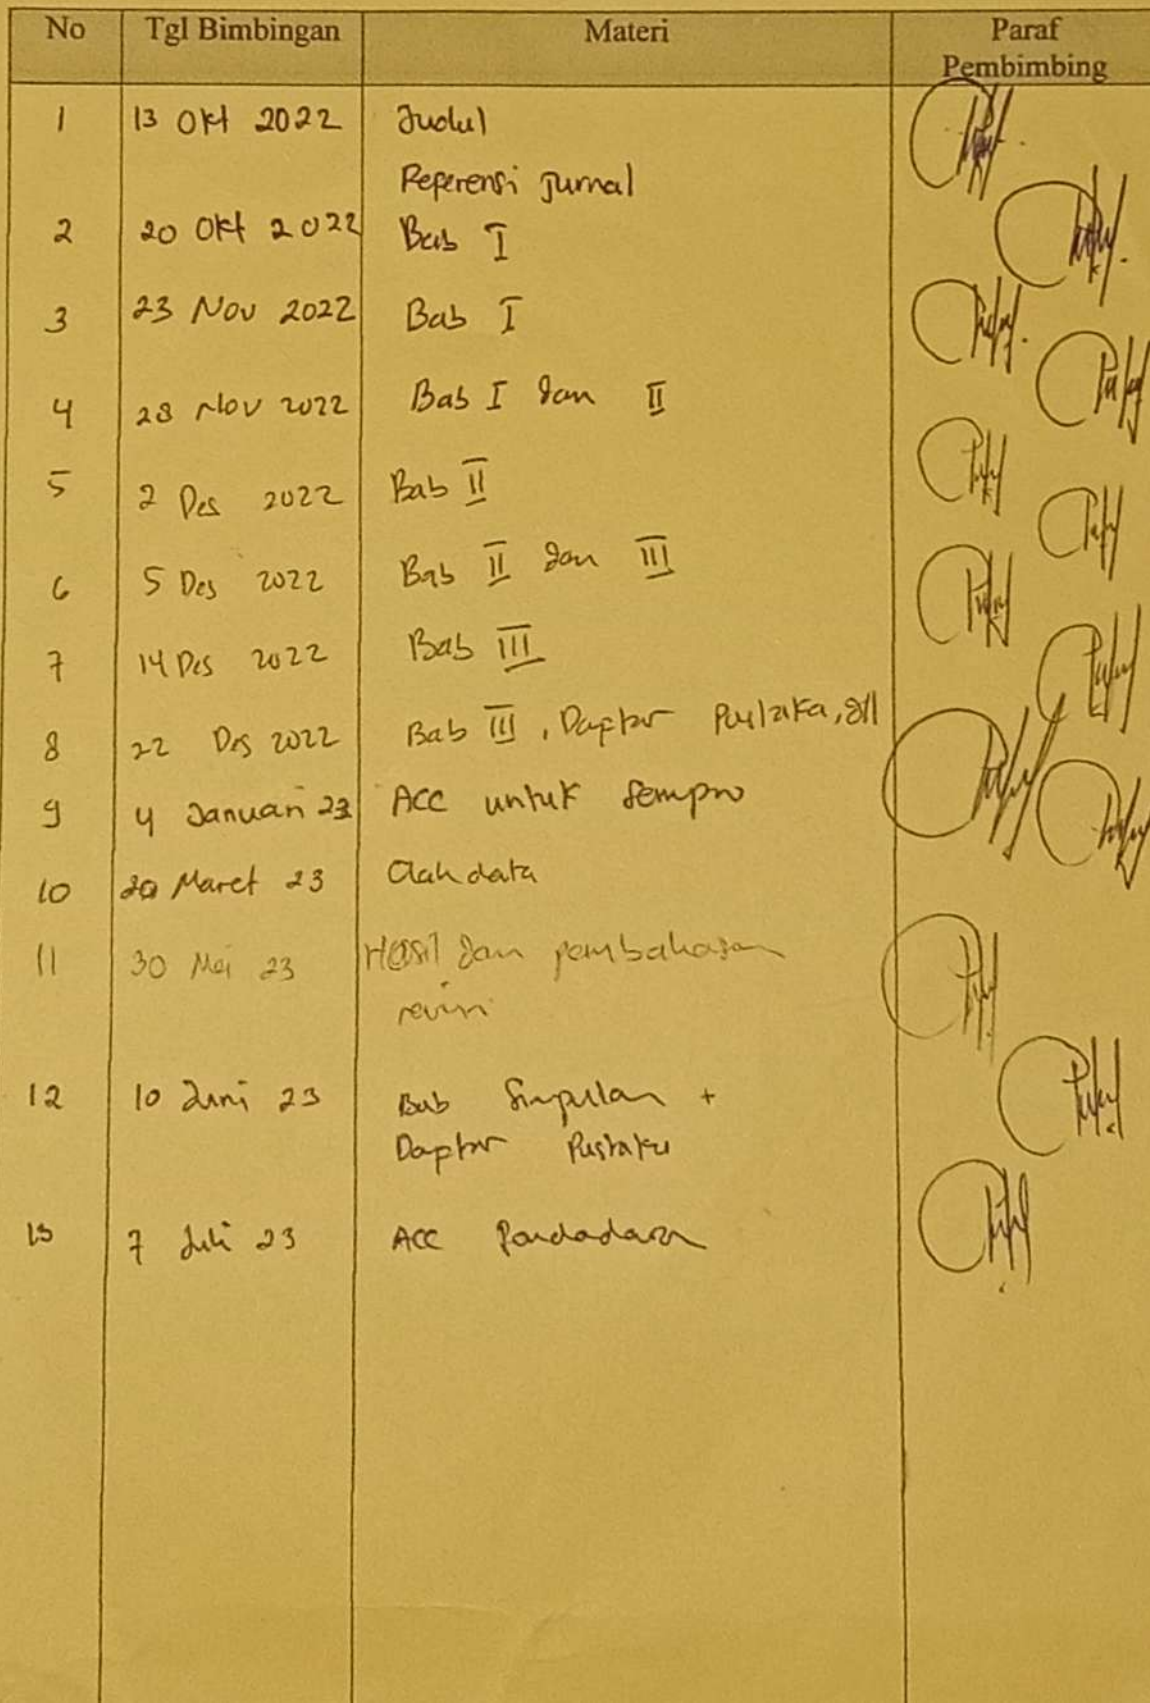 No Tgl Bimbingan Materi Paraf
Pembimbing
1 13 Okt 2022 Judul
Referensi Jurnal
2 20 Okt 2022 Bab I
3 23 Nov 2022 Bab I
4 28 Nov 2022 Bab I dan II
5 2 Des 2022 Bab II
6 5 Des 2022 Bab II dan III
7 14 Des 2022 Bab III
8 22 Des 2022 Bab III, Daftar Pustaka, dll
9 4 Januari 23 ACC untuk Sempro
10 20 Maret 23 Olah data
11 30 Mei 23 Hasil dan pembahasan
revisi
12 10 Juni 23 Bab Simpulan +
Daftar Pustaka
13 7 Juli 23 ACC Pendadaran